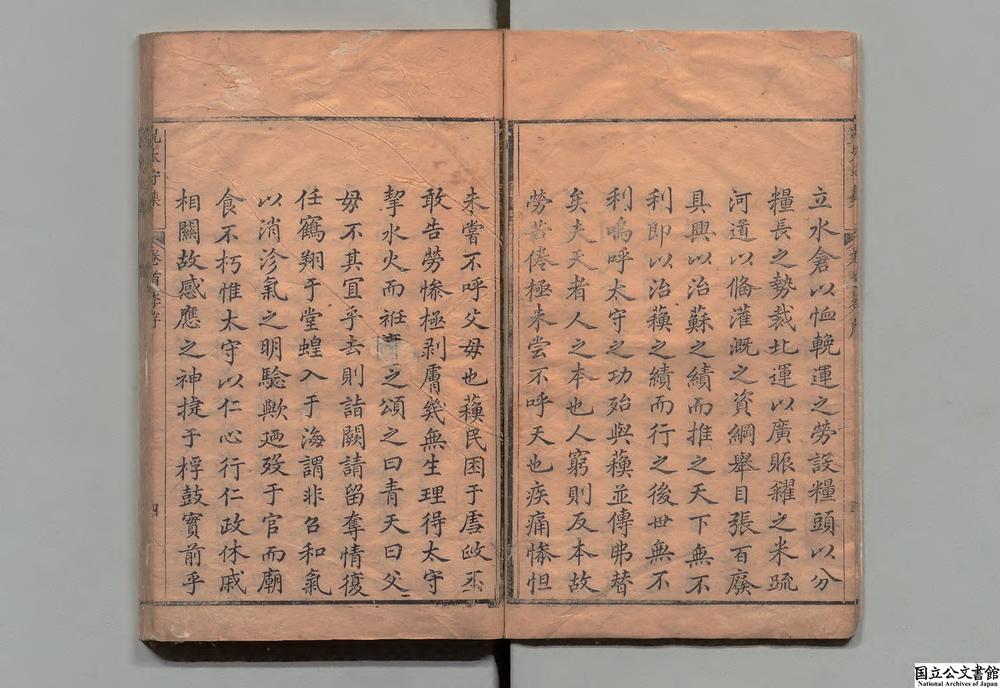 立水倉以恤輓運之勞設糧頭以分
糧長之勢裁北運以廣賑糴之米疏
河道以俻灌溉之資綱舉目張百廢
具興以治蘇之績而推之天下無不
利即以治蘓之績而行之後世無不
利嗚呼太守之功殆與蘓並傳弗替
矣夫天者人之本也人窮則反本故
勞苦倦極未尝不呼天也疾痛慘怛
未嘗不呼父毋也蘓民困于虐政不
敢告勞慘極剥膚幾無生理得太守
挈水火而袵之頌之曰青天曰父
毋不其冝乎去則詣闕請留奪情復
任鶴翔于堂蝗入于海謂非召和氣
以消沴氣之明驗歟廼歿于官而廟
食不朽惟太守以仁心行仁政休戚
相關故感應之神捷于桴鼓實前乎
況太守集
卷首李序
四
国立公文書館
National Archives of Japan